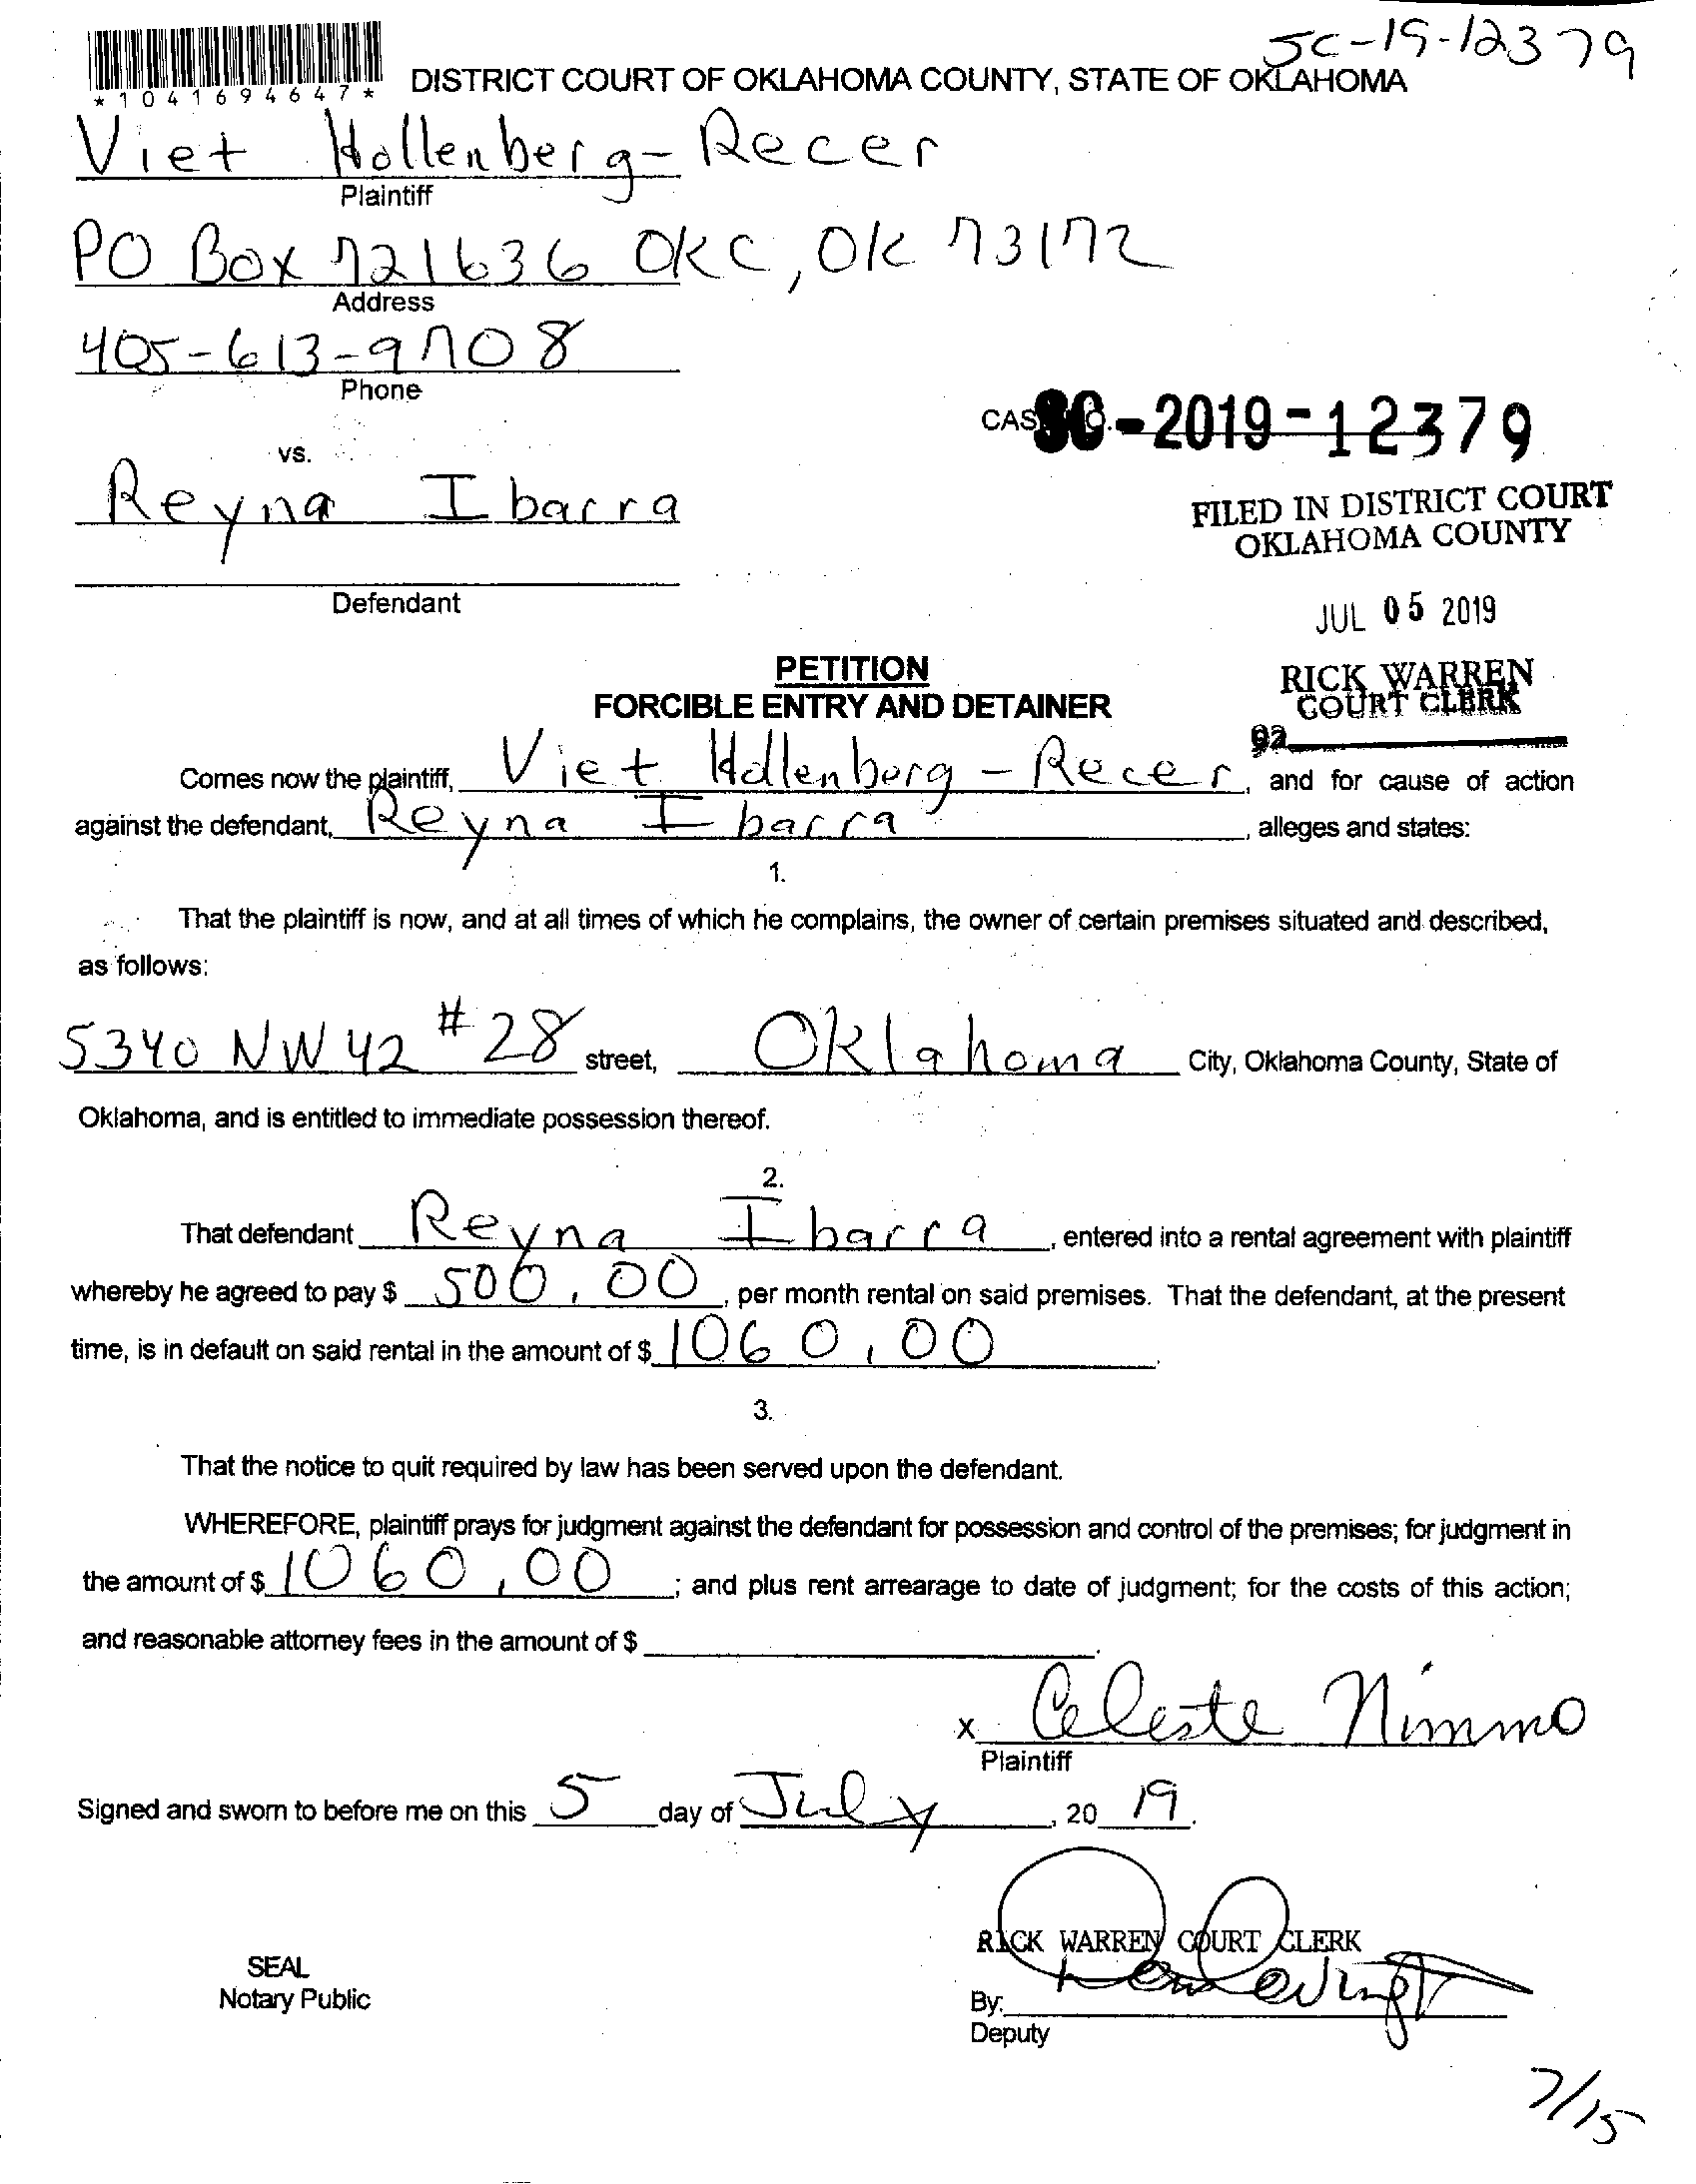 SC-19-12379
*1041694647*
DISTRICT COURT OF OKLAHOMA COUNTY, STATE OF OKLAHOMA
Viet Hollenberg-Recer
Plaintiff
PO Box 721636 OKC, OK 73172
Address
405-613-9708
Phone
CAS SC-2019-12379
vs.
Reyna Ibarra
FILED IN DISTRICT COURT
OKLAHOMA COUNTY
Defendant
JUL 05 2019
PETITION
RICK WARREN
FORCIBLE ENTRY AND DETAINER
COURT CLERK
92
Comes now the plaintiff, Viet Hollenberg-Recer, and for cause of action
against the defendant, Reyna Ibarra, alleges and states:
1.
That the plaintiff is now, and at all times of which he complains, the owner of certain premises situated and described,
as follows:
5340 NW 42 #28 street, Oklahoma City, Oklahoma County, State of
Oklahoma, and is entitled to immediate possession thereof.
2.
That defendant Reyna Ibarra, entered into a rental agreement with plaintiff
whereby he agreed to pay $ 500.00, per month rental on said premises. That the defendant, at the present
time, is in default on said rental in the amount of $ 1060.00.
3.
That the notice to quit required by law has been served upon the defendant.
WHEREFORE, plaintiff prays for judgment against the defendant for possession and control of the premises; for judgment in
the amount of $ 1060.00; and plus rent arrearage to date of judgment; for the costs of this action;
and reasonable attorney fees in the amount of $ .
x Celeste Nimmo
Plaintiff
Signed and sworn to before me on this 5 day of July, 2019.
RICK WARREN COURT CLERK
SEAL
Notary Public
By:
Deputy
7/15